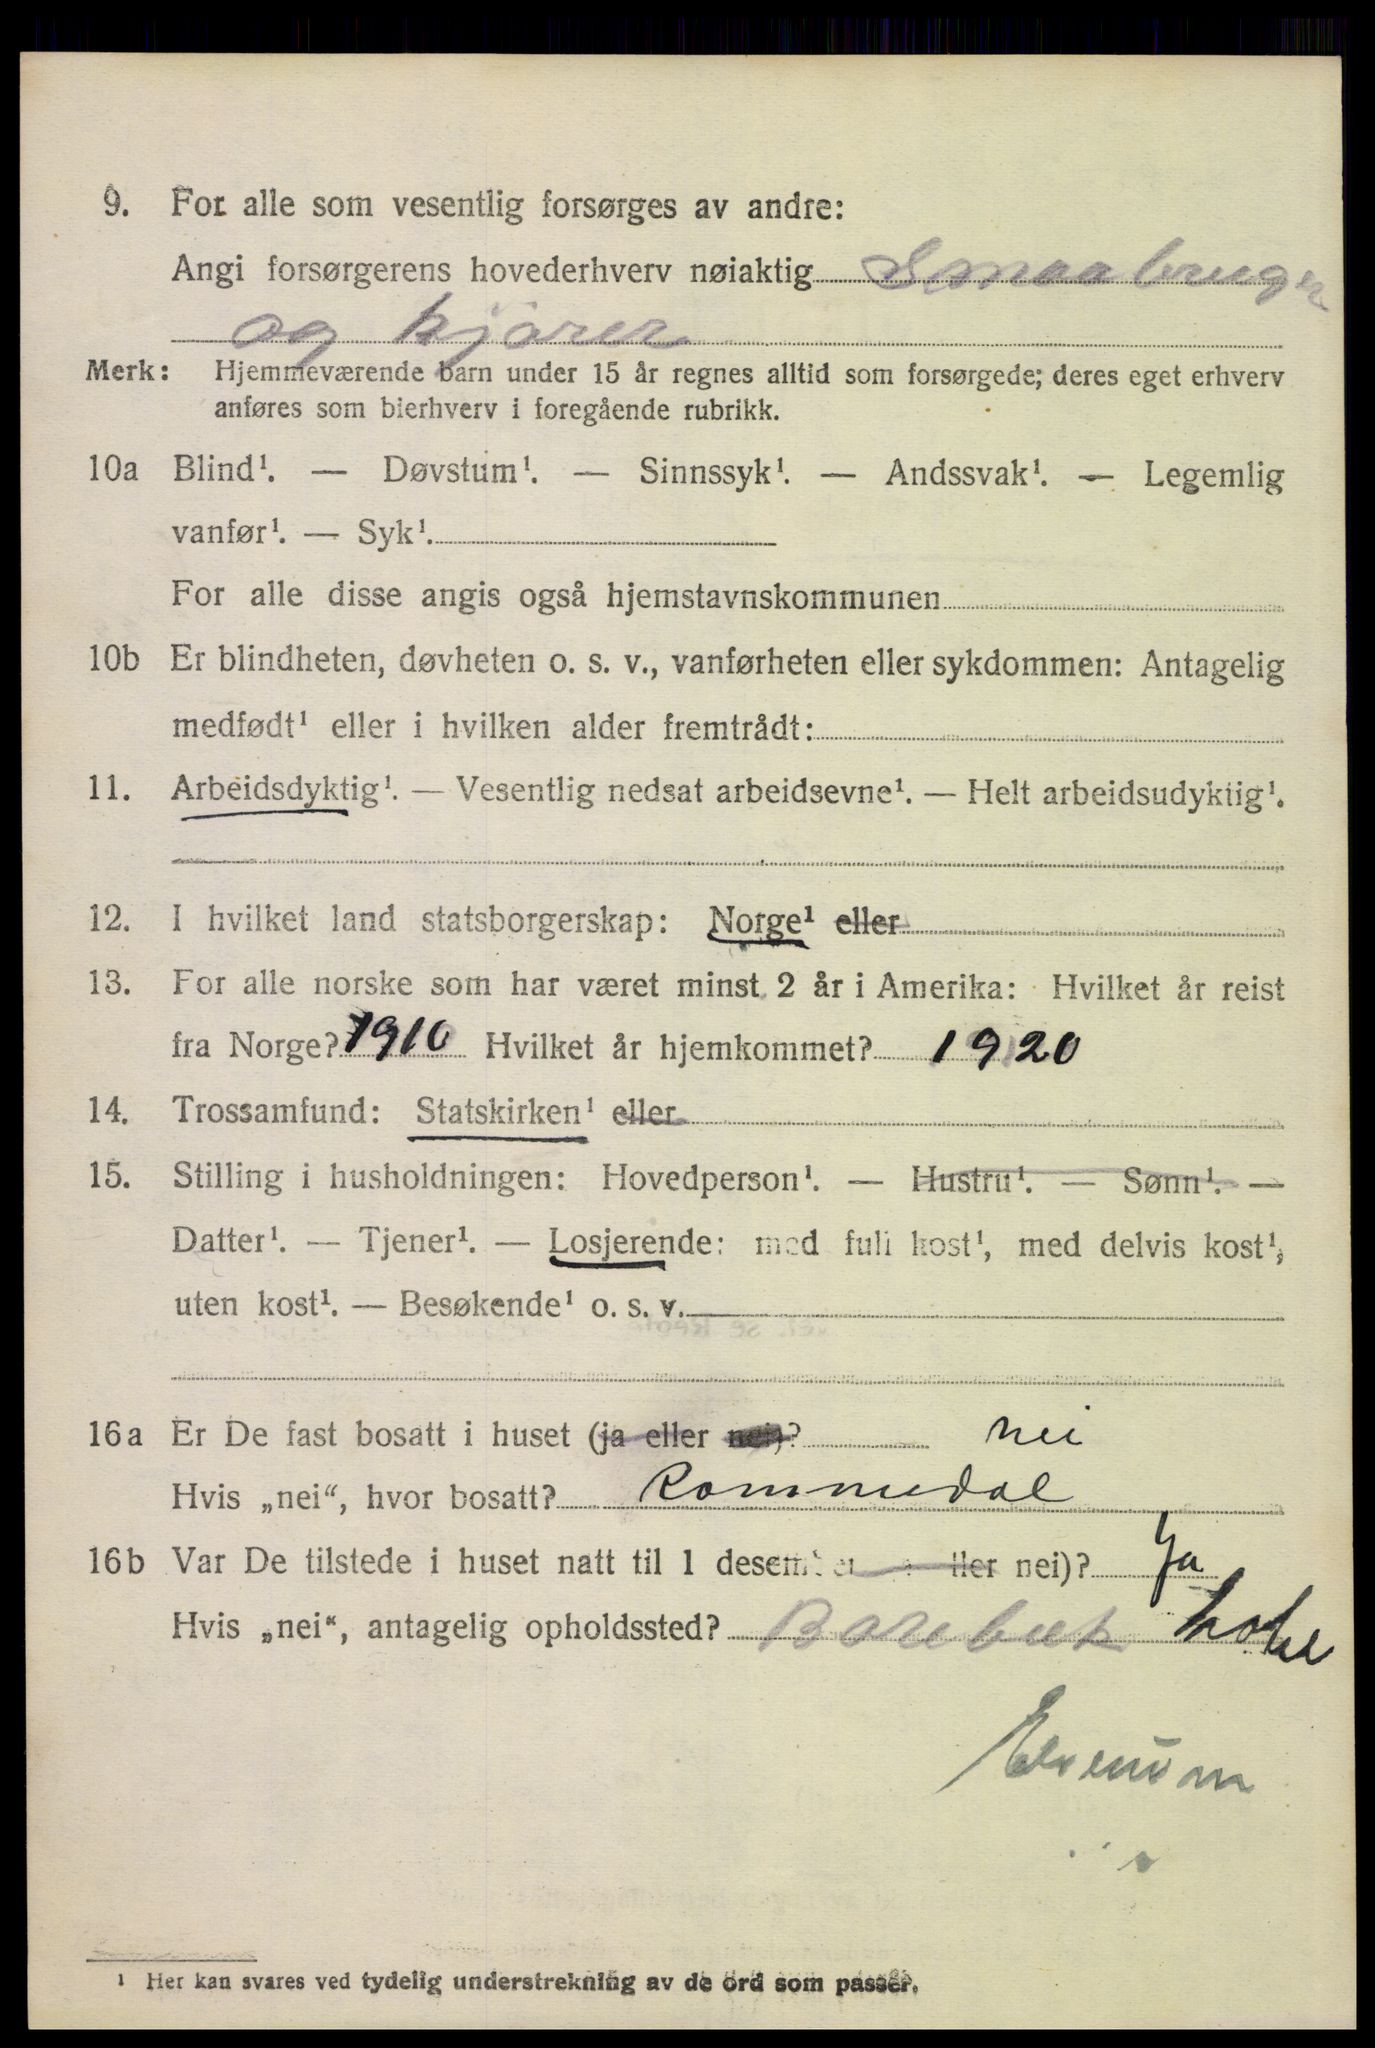 9. For alle som vesentlig forsørges av andre:
Angi forsørgerens hovederhverv nøiaktig Smaabruger
og kjører
Merk: Hjemmeværende barn under 15 år regnes alltid som forsørgede; deres eget erhverv
anføres som bierhverv i foregående rubrikk.
10a Blind¹. — Døvstum¹. — Sinnssyk¹. — Andssvak¹. — Legemlig
vanfør¹. — Syk¹.
For alle disse angis også hjemstavnskommunen
10b Er blindheten, døvheten o. s. v., vanførheten eller sykdommen: Antagelig
medfødt¹ eller i hvilken alder fremtrådt:
11. Arbeidsdyktig¹. — Vesentlig nedsat arbeidsevne¹. — Helt arbeidsudyktig¹.
12. I hvilket land statsborgerskap: Norge¹ eller
13. For alle norske som har været minst 2 år i Amerika: Hvilket år reist
fra Norge? 1910 Hvilket år hjemkommet? 1920
14. Trossamfund: Statskirken¹ eller
15. Stilling i husholdningen: Hovedperson¹. — Hustru¹. — Sønn¹. —
Datter¹. — Tjener¹. — Losjerende: med full kost¹, med delvis kost¹,
uten kost¹. — Besøkende¹ o. s. v.
16a Er De fast bosatt i huset (ja eller nei)? nei
Hvis „nei“, hvor bosatt? Rommedal
16b Var De tilstede i huset natt til 1 desember eller nei)? Ja
Hvis „nei“, antagelig opholdssted?
Elverum
¹ Her kan svares ved tydelig understrekning av de ord som passer.